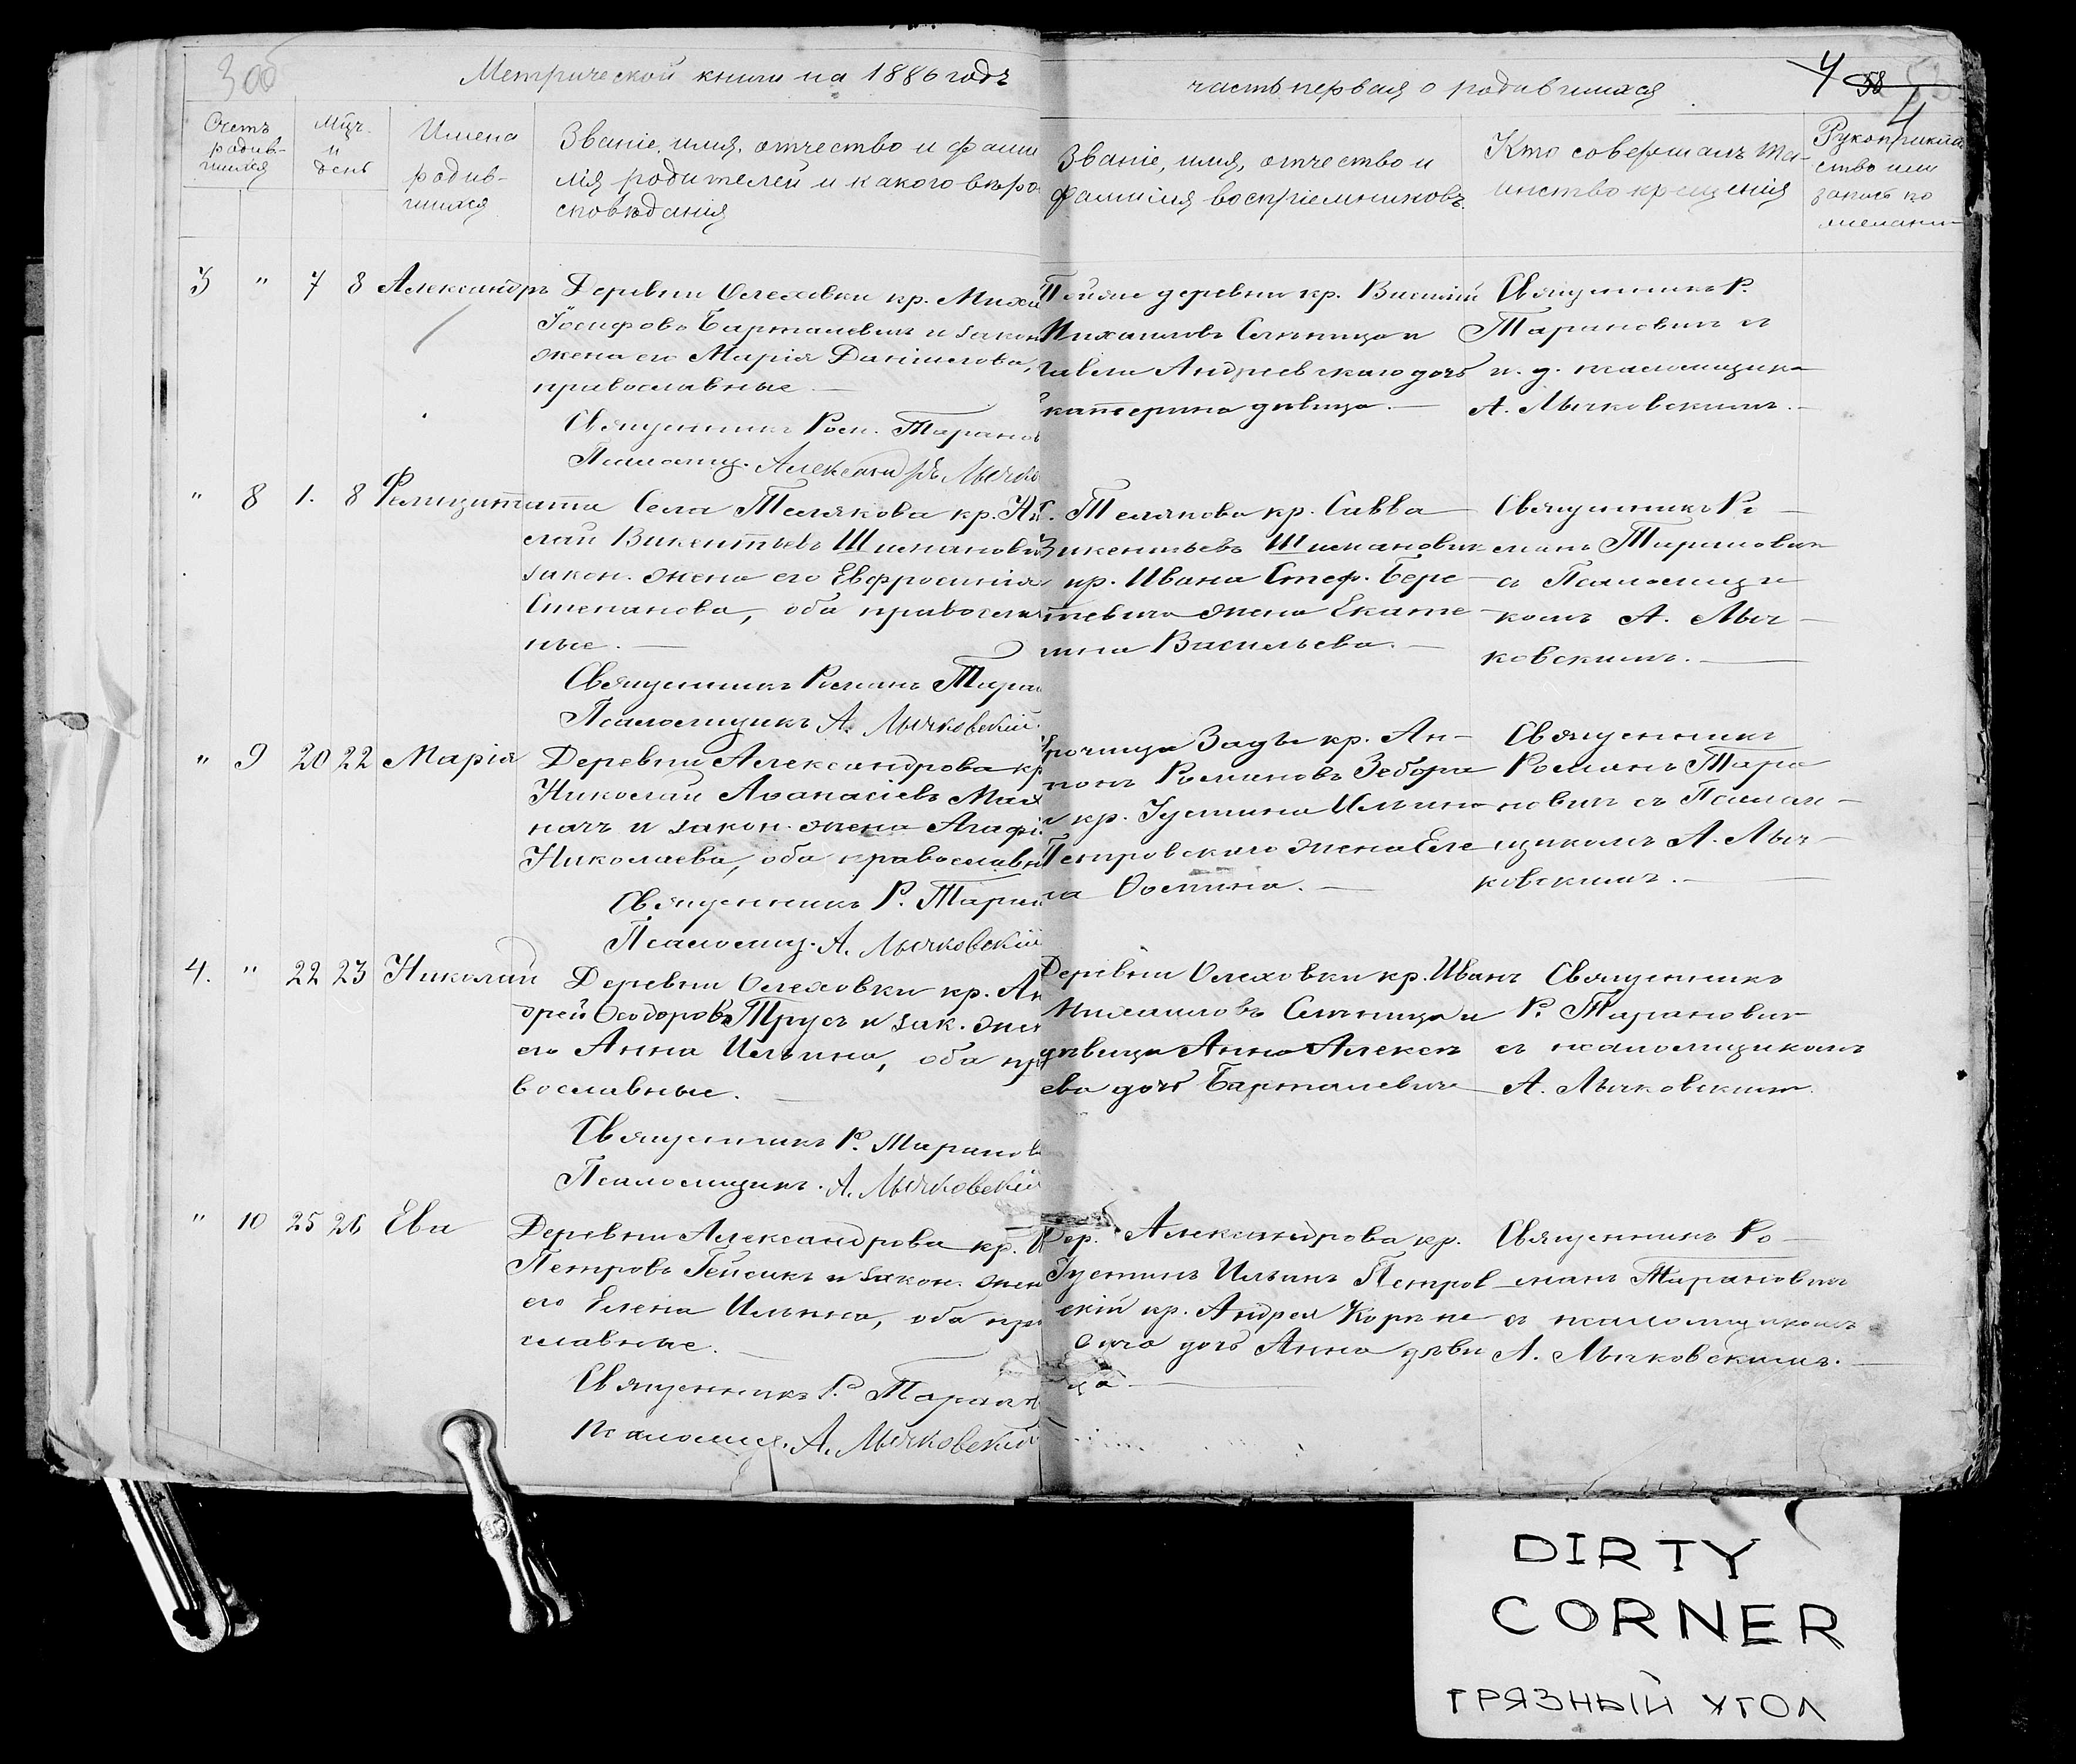 Метрической книги на 1886 годъ
часть первая о родившихся
4
58
4
Счетъ
родив-
шихся
Мѣц.
и
день
Имена
родив-
шихся
Званіе, имя, отчество и фами
лія родителей и какого вѣро
сповѣданія
Званіе, имя, отчество и
фамилія воспріемниковъ.
Кто совершалъ та-
инство крещенія
Рукоприклад
ство или
запись по
желанію
3 " 7 8 Александръ
Деревни Олеховки кр. Миха
Іосифовъ Барталевичъ и закон
жена его Марія Даніилова,
православные. —
Священникъ Ром. Таранов
Псаломщ. Александръ Лычко
Тойже деревни кр. Василій
Михаиловъ Слѣпица и
Павла Андреевскаго дочь
катерина дѣвица. —
Священникъ Р.
Тарановичъ съ
и. д. псаломщика
А. Лычковскимъ. —
" 8 1. 8 Фелицитата
Села Телякова кр. Ни
лай Викентьевъ Шиманови
закон. жена его Евфросинія
Степанова, оба православ
ные. —
Священникъ Романъ Тара
Псаломщикъ А. Лычковскій.
С. Телякова кр. Савва
Викентьевъ Шимановичъ
кр. Ивана Стеф. Бере-
жена Екате-
рина Васильева. —
Священникъ Ро-
манъ Тарановичъ
съ Псаломщи-
комъ А. Лыч-
ковскимъ. —
" 9 20 22 Марія
Деревни Александрова кр
Николай Аѳанасіевъ Мах
начъ и закон. жена Агафі
Николаева, оба православн
Священникъ Р. Таран
Псаломщ. А. Лычковскій
Урочища Задъ кр. Ан-
тонъ Романовъ Зебора
и кр. Іустина Ильина
Петровскаго жена Еле
на Осипина. —
Священникъ
Романъ Тара
новичъ съ Псалом-
щикомъ А. Лыч-
ковскимъ. —
4. " 22 23 Николай
Деревни Олеховки кр. Ан
дрей Ѳеодоровъ Трусъ и зак. жен
его Анна Ильина, оба пра
вославные. —
Священникъ Р. Таранов
Псаломщикъ. А. Лычковскій
Деревни Олеховки кр. Иванъ
Михаиловъ Слѣпица и
дѣвица Анна Алексѣ
ева дочь Барталевича
Священникъ
Р. Тарановичъ
съ псаломщикомъ
А. Лычковскимъ.
" 10 25 26 Ева
Деревни Александрова кр. И
Петровъ Гейсикъ и закон. жен
его Елена Ильина, оба пра
славные. —
Священникъ Р. Таранов
Псаломщ. А. Лычковскій
Дер. Александрова кр.
Іустинъ Ильинъ Петров
скій кр. Андрея
дочь Анна дѣви
ца —
Священникъ Ро-
манъ Тарановичъ
съ псаломщикомъ
А. Лычковскимъ. —
DIRTY
CORNER
ГРЯЗНЫЙ УГОЛ